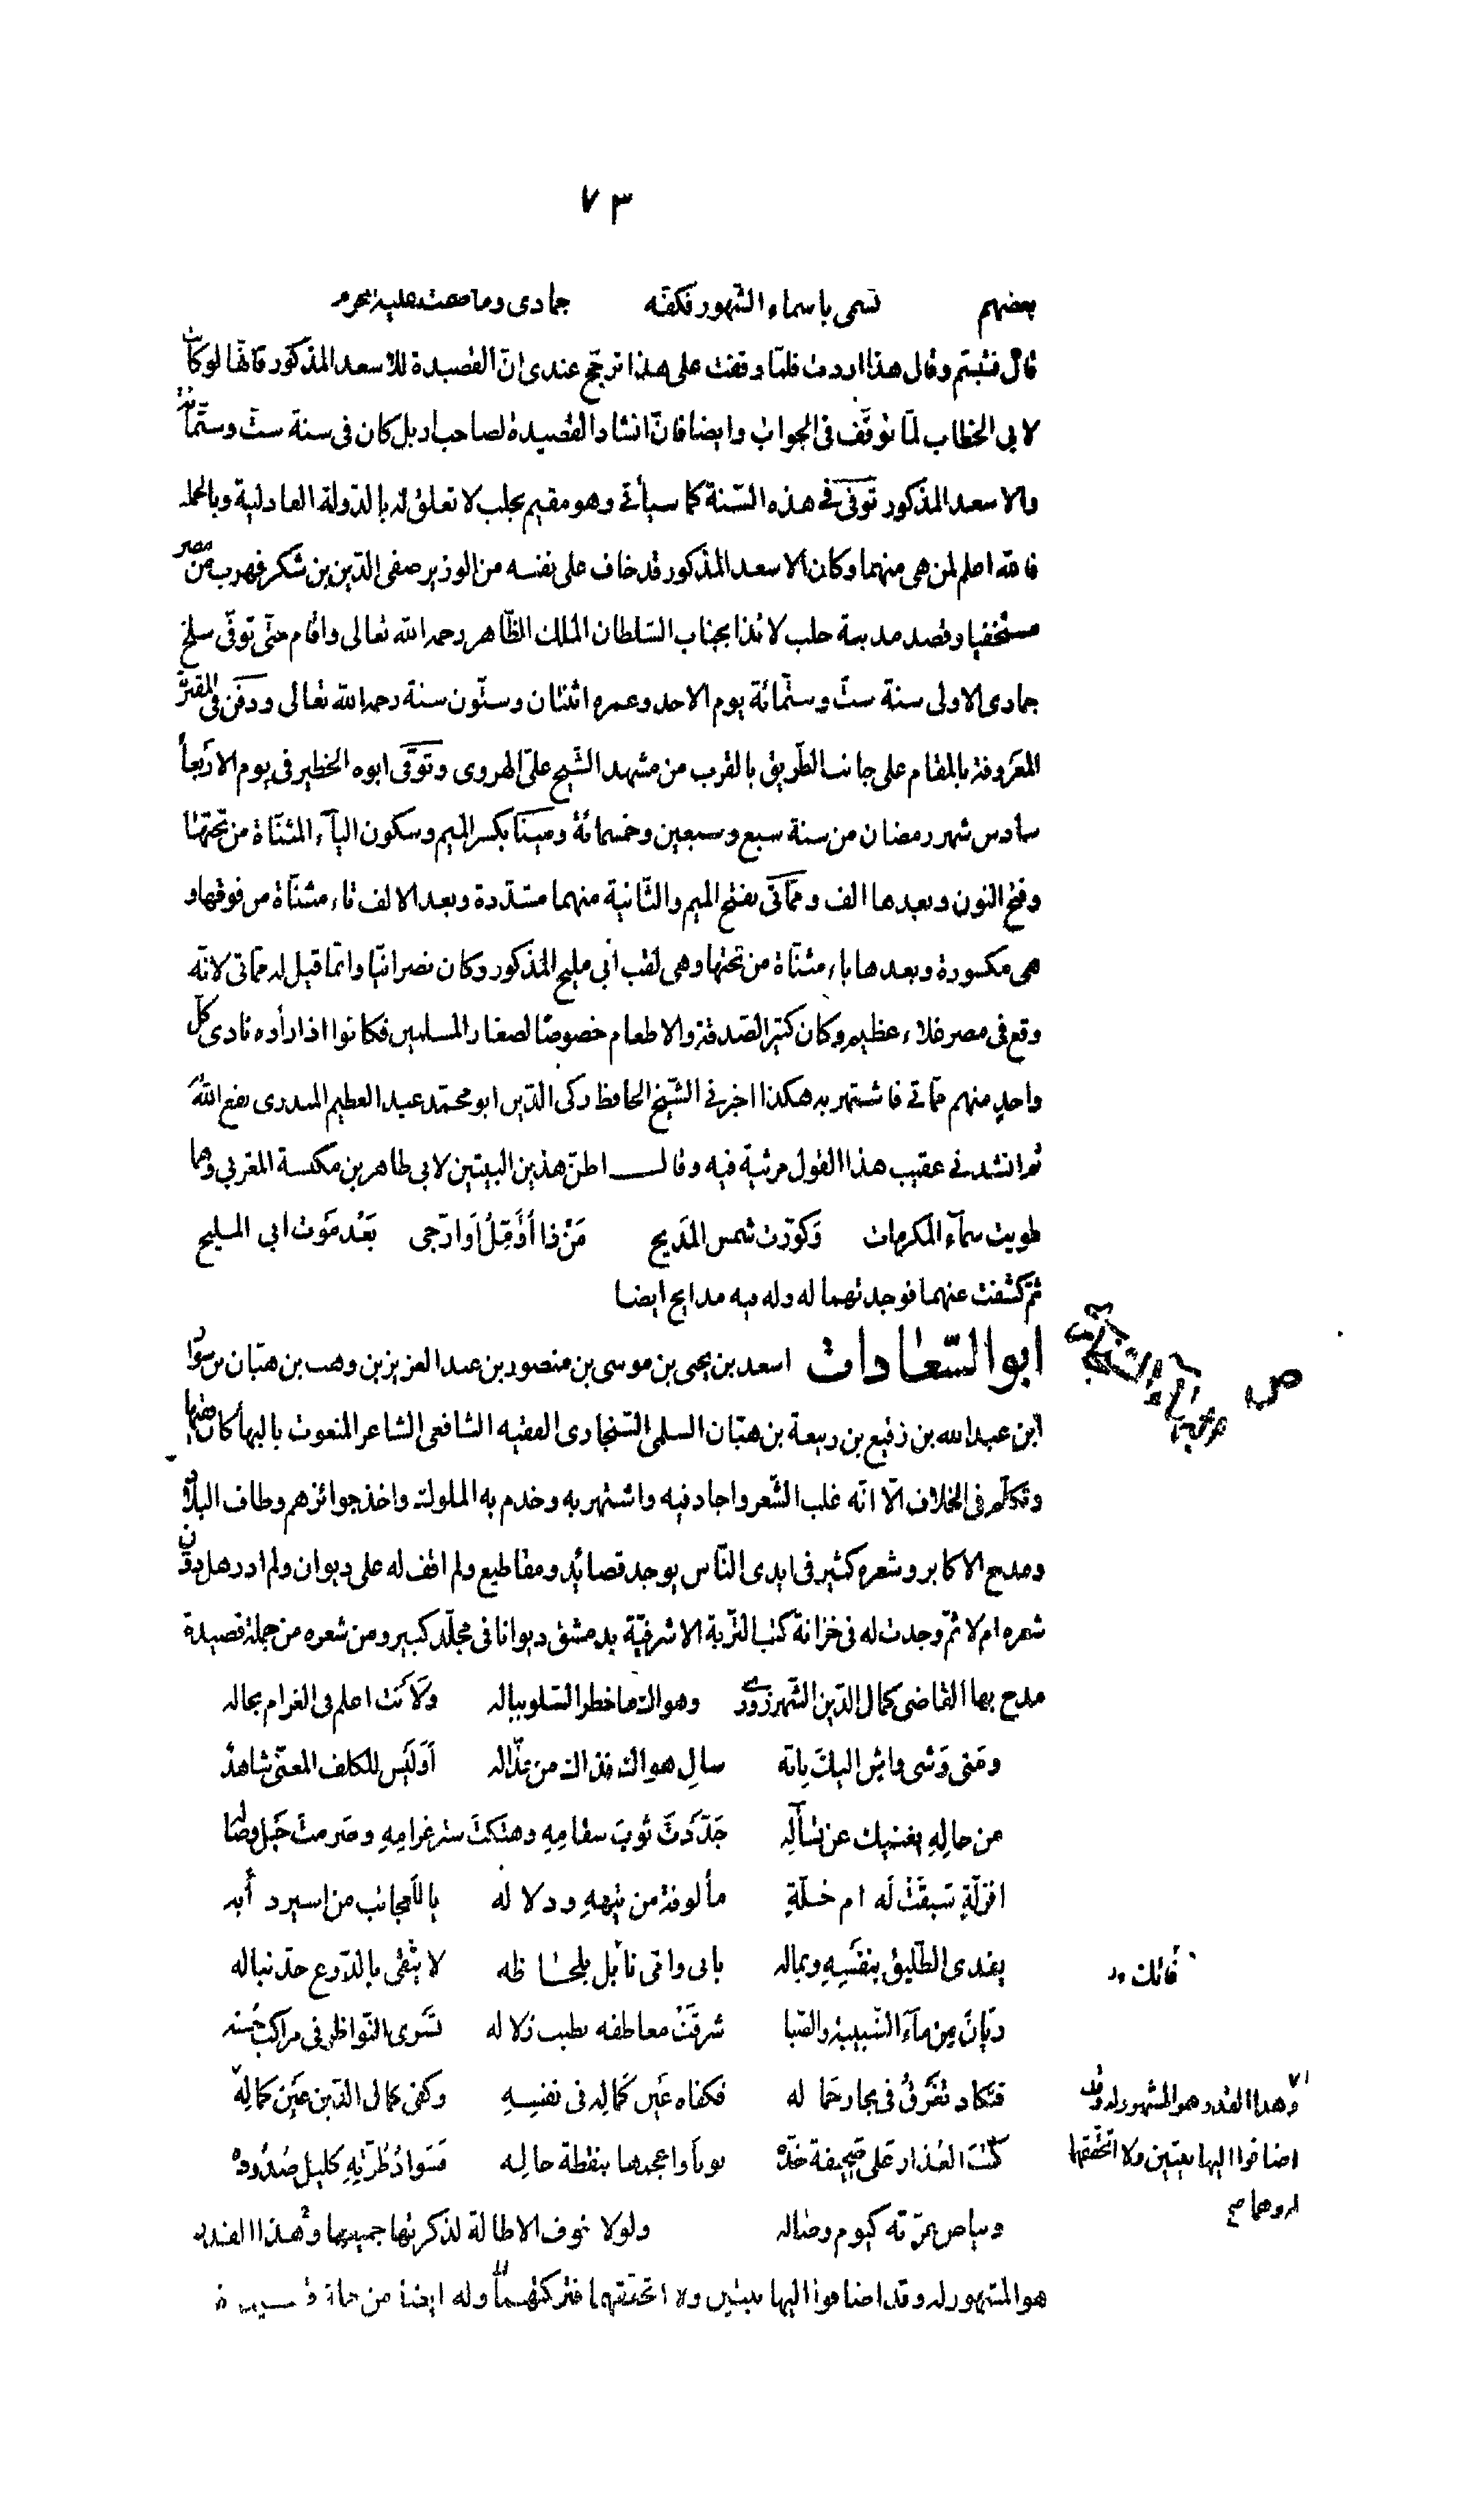 ٧٣
بعضهم تسمى باسماء الشهور فكفه جمادى وما ضمت عليه المحرم
قال فتبسم وقال هذا اردت فلمّا وقفت على هذا ترجّح عندى انّ القصيدة للاسعد المذكور فانّها لو كانت
لابى الخطاب لمّا توقّف فى الجواب وايضا فانّ انشاد القصيدة لصاحب اربل كان فى سنة ستّ وستّمائة
والاسعد المذكور توفّى فى هذه السّنة كما سيأتى وهو مقيم بحلب لا تعلق له بالدّولة العادلية وبالجملة
فالله اعلم لمن هى منهما وكان الاسعد المذكور قد خاف على نفسه من الوزير صفى الدّين بن شكر فهرب من مصر
مستخفيا وقصد مدينة حلب لائذا بجناب السّلطان الملك الظّاهر رحمه الله تعالى واقام حتّى توفّى سلخ
جمادى الاولى سنة ستّ وستّمائة يوم الاحد وعمره اثنتان وستّون سنة رحمه الله تعالى ودفن فى المقبرة
المعروفة بالمقام على جانب الطّريق بالقرب من مشهد الشّيخ علىّ الهروى وتوفّى ابوه الخطير فى يوم الاربعاء
سادس شهر رمضان من سنة سبع وسبعين وخمسمائة ومينا بكسر الميم وسكون اليآء المثنّاة من تحتها
وفتح النون وبعدها الف ومّماتى بفتح الميم والثّانية منهما مشدّدة وبعد الالف تاء مثنّاة من فوقها و
هى مكسورة وبعدها ياء مثنّاة من تحتها وهى لقب أبى مليح المذكور وكان نصرانيّا وانّما قيل له ممّاتى لانّه
وقع فى مصر غلاء عظيم وكان كثير الصّدقة والاطعام خصوصًا لصغار المسلمين فكانوا اذا رأوه نادى كلّ
واحدٍ منهم ممّاتى فاشتهر به هكذا اخبرنى الشّيخ الحافظ زكى الدّين ابو محمّد عبد العظيم المنذرى نفع الله به
ثم انشد فى عقيب هذا القول مرثية فيه وقال اظنّ هذين البيتين لابى طاهر بن مكنسة المغربى وهما
طويت سمآء المكرمات وَكوّرت شمس المَديح مَنْ ذا أُؤَمّلُ اَو ارتجى بَعْد مَوت ابى المليح
ثمّ كشفت عنهما فوجدتهما له وله فيه مدايح ايضا
ابو السّعادات اسعد بن يحيى بن موسى بن منصور بن عبد العزيز بن وهب بن هبّان بن سوار
ابن عبد الله بن رفيع بن ربيعة بن هبّان السلمى السّنجارى الفقيه الشافعى الشاعر المنعوت بالبهاء كان فقيها
وتكلّم فى الخلاف الّا انّه غلب الشّعر واجاد فيه واشتهر به وخدم به الملوك واخذ جوائزهم وطاف البلاد
ومدح الاكابر وشعره كثير فى ايدى النّاس يوجد قصائد ومقاطيع ولم اقف له على ديوان ولم ادر هل دوّن
شعره ام لا ثمّ وجدت له فى خزانة كتب التّربة الاشرفيّة بدمشق ديوانا فى مجلّد كبير ومن شعره من جملة قصيدة
مدح بها القاضى كمال الدّين الشّهرزورى وهواك ما خطر السّلو بباله ولَأنت اعلم فى الغرام بحاله
ومَتى وَشى واشٍ اليكَ بِانّه سالٍ هواك فذاك من عذّاله أوَليْس للكلف المعنّى شاهدٌ
من حالِهِ يغنيك عن تسآلِهِ جَدّدتَّ ثوبَ سقامِهِ وهتكتَ ستر غرامِهِ وصَرمتَ حَبل وصاله
افزلّةٍ سَبقَتْ لَه ام خلّةٍ مألوفة من تيههِ ودلاله يا للعجائب من اسير دأبه
يفدى الطّليق بنفسِهِ وبماله بابى وامّى نابل بلحاظه لا يتّقى بالدّرع حدّ نباله
ريّانُ مِن مآءَ الشّبيبة والصّبا شرقَتْ معاطفه بطيب زلاله تَسْرى النّواظر فى مراكب حُسنه
فتكاد تغرَقُ فى بحار جَماله فكفاه عَين كَمالِه فى نفسِهِ وكفى كمال الدّين عَين كمالِهِ
كتب العُذار عَلى صَحيفة خدّه نوناً واعجمها بنقطة خاله فسَوادُ طُرّتِهِ كليل صُدُوده
وبياض غرّته كيوم وصاله ولولا خوف الاطالة لذكرتها جميعها وهذا القدر
هو المشهور له وقد اضافوا اليها بيتين ولا اتحقّقهما فتركتهما وله ايضا من جملة قصيدة
ص
فاتك
وهذا القدر هو المشهور له وقد
اضافوا اليها بيتين ولا اتحقّقها
له وهما صح